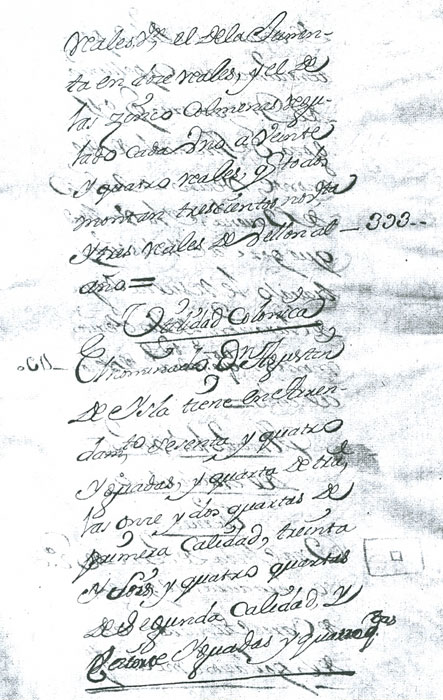 reales Vn, el de la Jumen-
ta en doze reales, y el de
las zinco Colmenas regu-
lado cada Uno a Veinte
y quatro reales, q.e todos
montan trescientos nov.ta
y tres reales de Vellon al — 393--
año=
Utilidad Colonica
El nominado D.n Agustin
de Isla tiene en Arren-
dam.to sesenta y quatro
Yguadas, y quarta de tra,
las onze y dos quartas de
primera Calidad, treinta
y seis, y quatro quartas
de Segunda Calidad, y
Catorze Yguadas y quatro q.tas